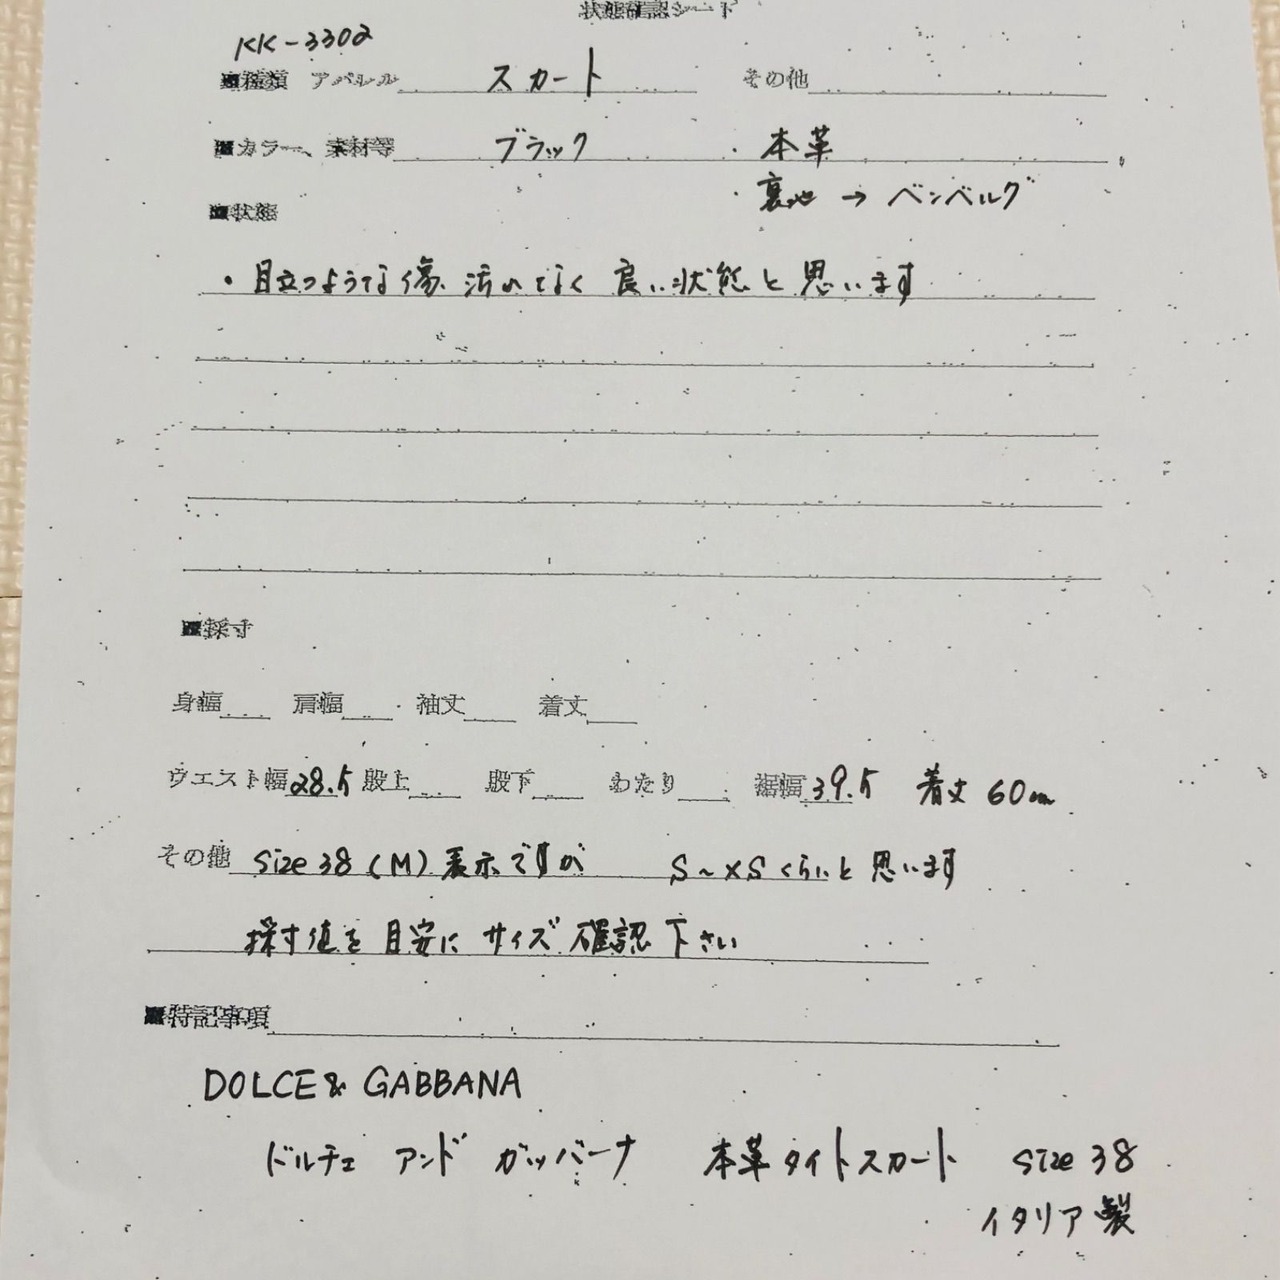 状態確認シート
KK-3302
■種類 アパレル スカート その他
■カラー、素材等 ブラック ・本革
・裏地 → ベンベルグ
■状態
・目立つような傷、汚れなく 良い状態と思います
■採寸
身幅 肩幅 袖丈 着丈
ウエスト幅 28.5 股上 股下 わたり 裾幅 39.5 着丈 60cm
その他 size 38 (M) 表示ですが S~XSくらいと思います
採寸値を目安にサイズ確認下さい
■特記事項
DOLCE & GABBANA
ドルチェ アンド ガッバーナ 本革タイトスカート size 38
イタリア製